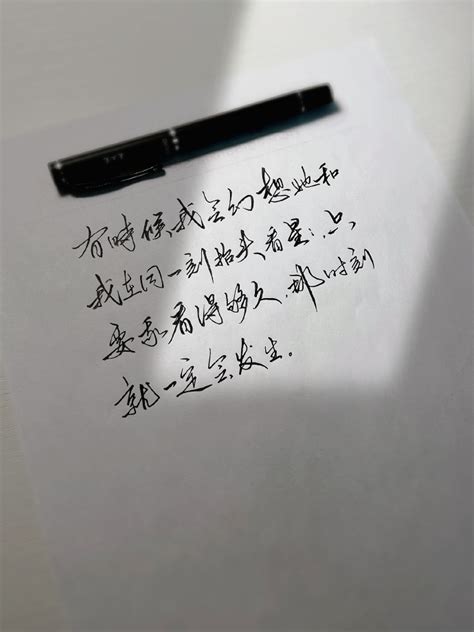 有時候,我会幻想她和
我在同一刻抬头看星:只
要我看得够久,那时刻
就一定会发生。